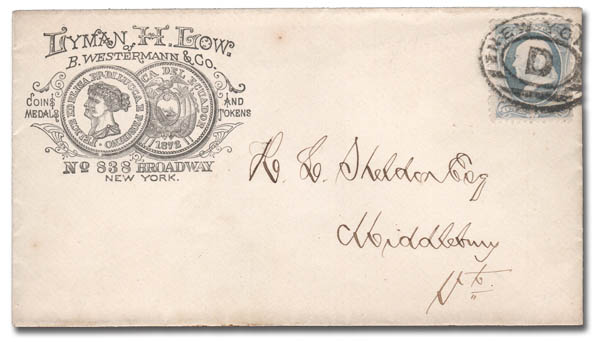 LYMAN H. LOW.
of
B. WESTERMANN & CO.
COINS
MEDALS
AND
TOKENS
REPUBLICA DEL ECUADOR
1872
No 838 BROADWAY
NEW YORK.
D
H. L. Sheldon Esq
Middlebury
Vt.